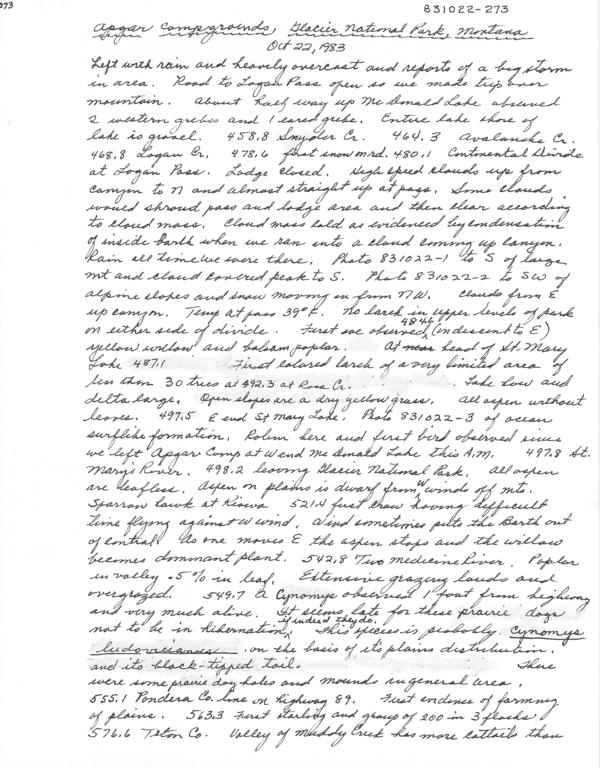 273
831022-273
Apgar Campgrounds, Glacier National Park, Montana
Oct 22, 1983
Left with rain and heavily overcast and reports of a big storm
in area. Road to Logan Pass open so we made trip over
mountain. About half way up McDonald Lake observed
2 western grebes and 1 eared grebe. Entire lake shore of
lake is gravel. 458.8 Snyder Cr. 464.3 Avalanche Cr.
468.8 Logan Cr. 478.6 first snow on rd. 480.1 Continental Divide
at Logan Pass. Lodge closed. High speed clouds up from
canyon to N and almost straight up at pass. Some clouds
would shroud pass and lodge area and then clear according
to cloud mass. Cloud mass cold as evidenced by condensation
of inside Barth when we ran into a cloud coming up canyon.
Rain all time we were there. Photo 831022-1 to S of large
mt and cloud covered peak to S. Photo 831022-2 to SW of
alpine slopes and snow moving in from NW. Clouds from E
up canyon. Temp at pass 39° F. No larch in upper levels of park
on either side of divide. First we observed 484.6 (in descent to E)
yellow willow and balsam poplar. At near head of St. Mary
Lake 487.1 First colored larch of a very limited area of
less than 30 trees at 492.3 at Rose Cr. Lake low and
delta large. Open slopes are a dry yellow grass. All aspen without
leaves. 497.5 E end St Mary Lake. Photo 831022-3 of ocean
surflike formation. Robin here and first bird observed since
we left Apgar Camp at W end McDonald Lake this A.M. 497.8 St.
Mary's River. 498.2 leaving Glacier National Park. All aspen
are leafless. Aspen on plains is dwarf from W winds off mt.
Sparrow hawk at Kiowa 521.4 first crow having difficult
time flying against W wind. Wind sometimes puts the Barth out
of control. As one moves E the aspen stops and the willow
becomes dominant plant. 542.8 Two Medicine River. Poplar
in valley .5% in leaf. Extensive grazing lands and
overgrazed. 549.7 a Cynomys observed 1 foot from highway
and very much alive. It seems late for these prairie dogs
not to be in hibernation if indeed they do. This species is probably Cynomys
ludovicianus on the basis of it's plains distribution
and its black-tipped tail. There
were some prairie dog holes and mounds in general area.
555.1 Pondera Co. line on highway 89. First evidence of farming
of plains. 563.3 First starling and group of 200 in 3 flocks
576.6 Teton Co. Valley of Muddy Creek has more cattails than